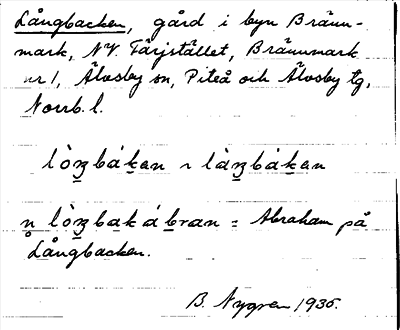 Långbacken, gård i byn Bränn-
mark, NV. Färjstället, Brännmark
nr 1, Älvsby sn, Piteå och Älvsby tg,
Norrb. l.
lòŋbákan ~ làŋbákan
n̥ lòŋbakábran = Abraham på
Långbacken.
B. Nygren 1935.